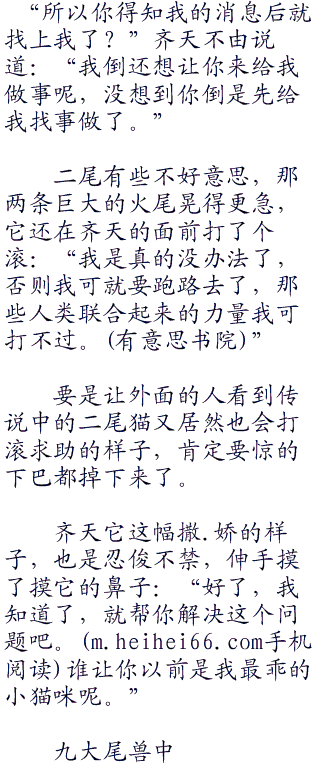 “所以你得知我的消息后就
找上我了？”齐天不由说
道：“我倒还想让你来给我
做事呢，没想到你倒是先给
我找事做了。”
二尾有些不好意思，那
两条巨大的火尾晃得更急，
它还在齐天的面前打了个
滚：“我是真的没办法了，
否则我可就要跑路去了，那
些人类联合起来的力量我可
打不过。(有意思书院)”
要是让外面的人看到传
说中的二尾猫又居然也会打
滚求助的样子，肯定要惊的
下巴都掉下来了。
齐天它这幅撒.娇的样
子，也是忍俊不禁，伸手摸
了摸它的鼻子：“好了，我
知道了，就帮你解决这个问
题吧。(m.heihei66.com手机
阅读)谁让你以前是我最乖的
小猫咪呢。”
九大尾兽中